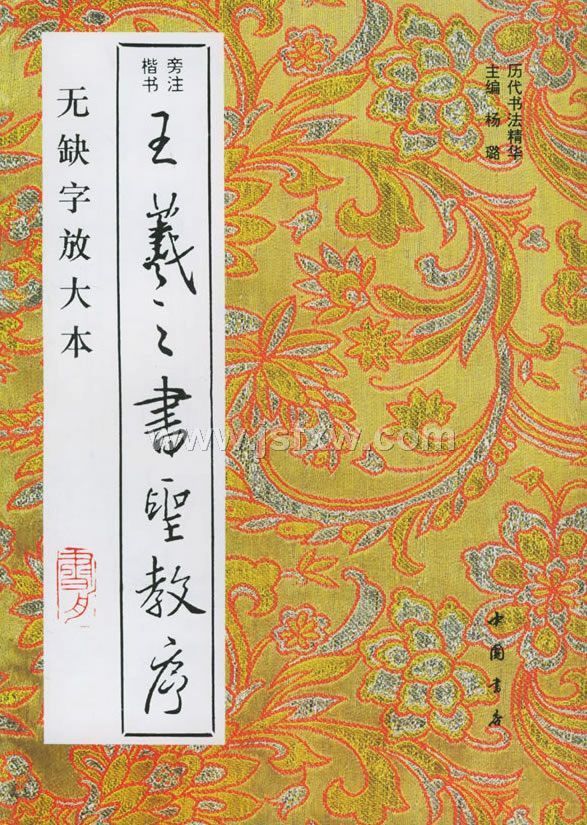 历代书法精华
主编 杨璐
旁注
楷书
王羲之书聖教序
无缺字放大本
中国书店
www.jsfxw.com